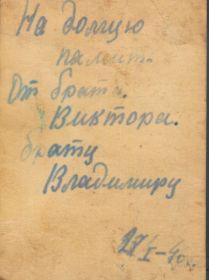 На долгую
памит.
От брата.
Виктора.
брату
Владимиру
27/I-40г.